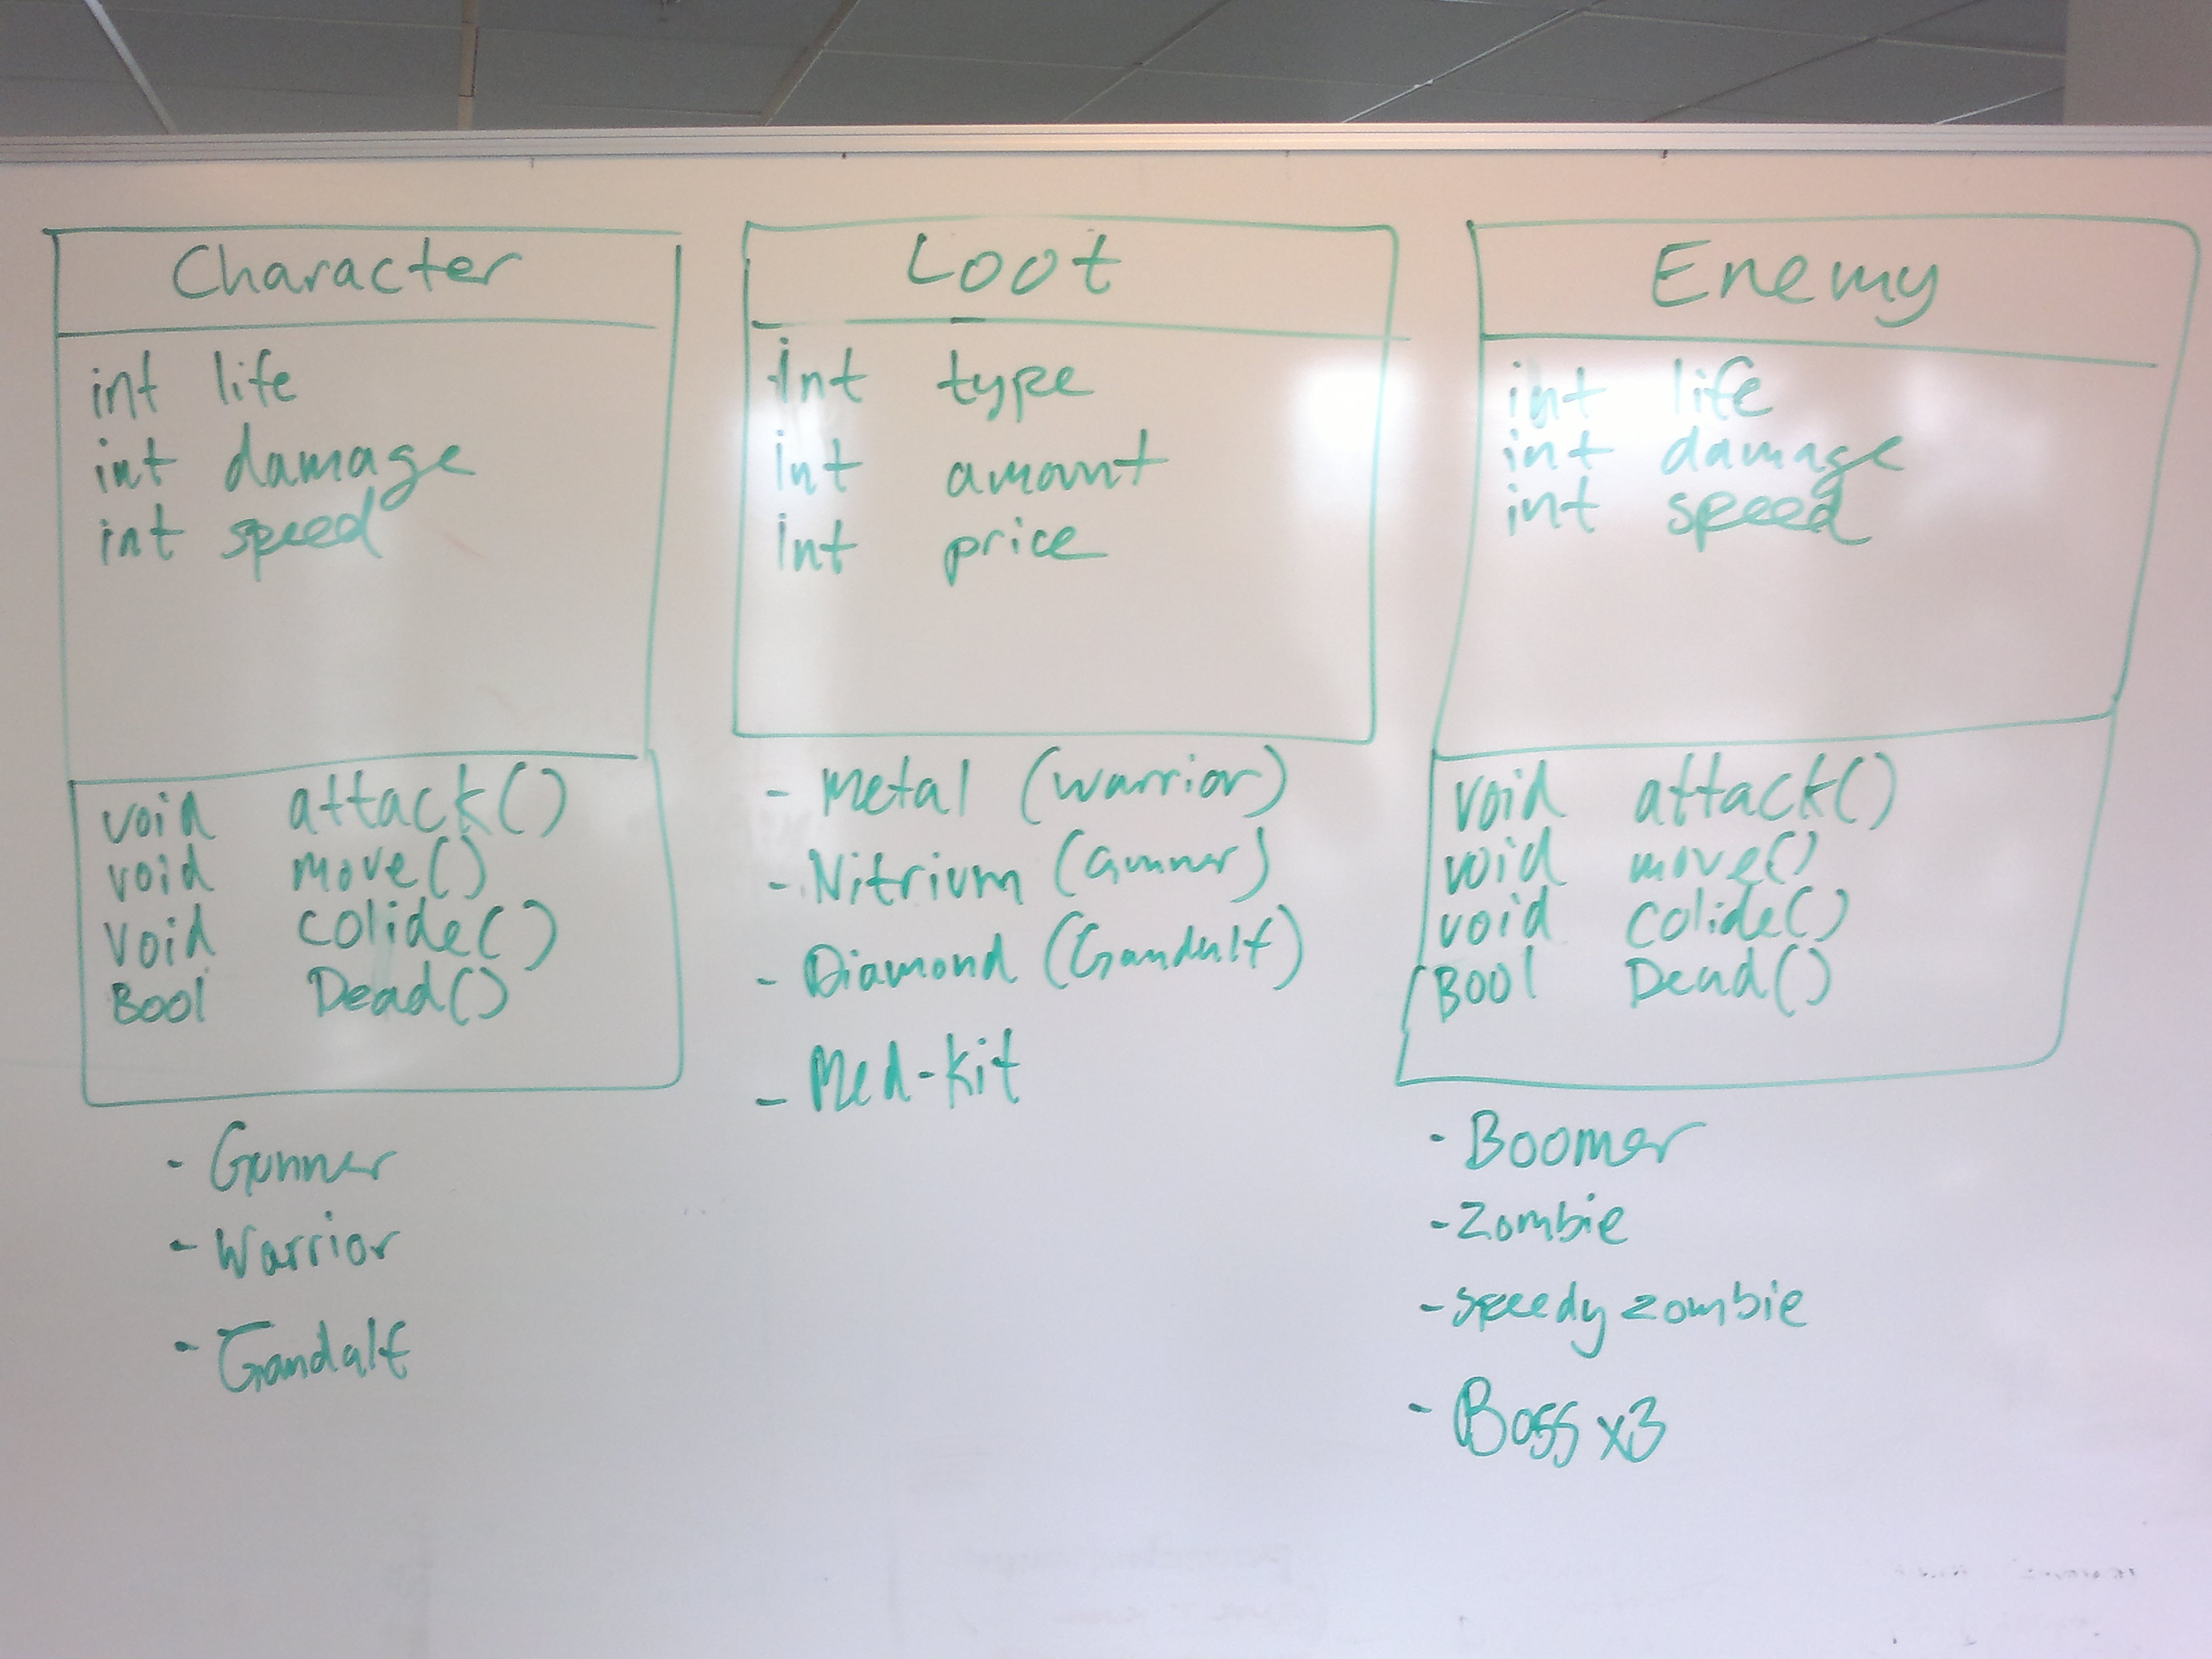 Character
int life
int damage
int speed
void attack()
void move()
void colide()
Bool Dead()
- Gunner
- Warrior
- Gandalf
Loot
int type
int amount
int price
- Metal (warrior)
- Nitrium (Gunner)
- Diamond (Gandalf)
- Med-kit
Enemy
int life
int damage
int speed
void attack()
void move()
void colide()
Bool Dead()
- Boomer
- Zombie
- speedy zombie
- Boss x3